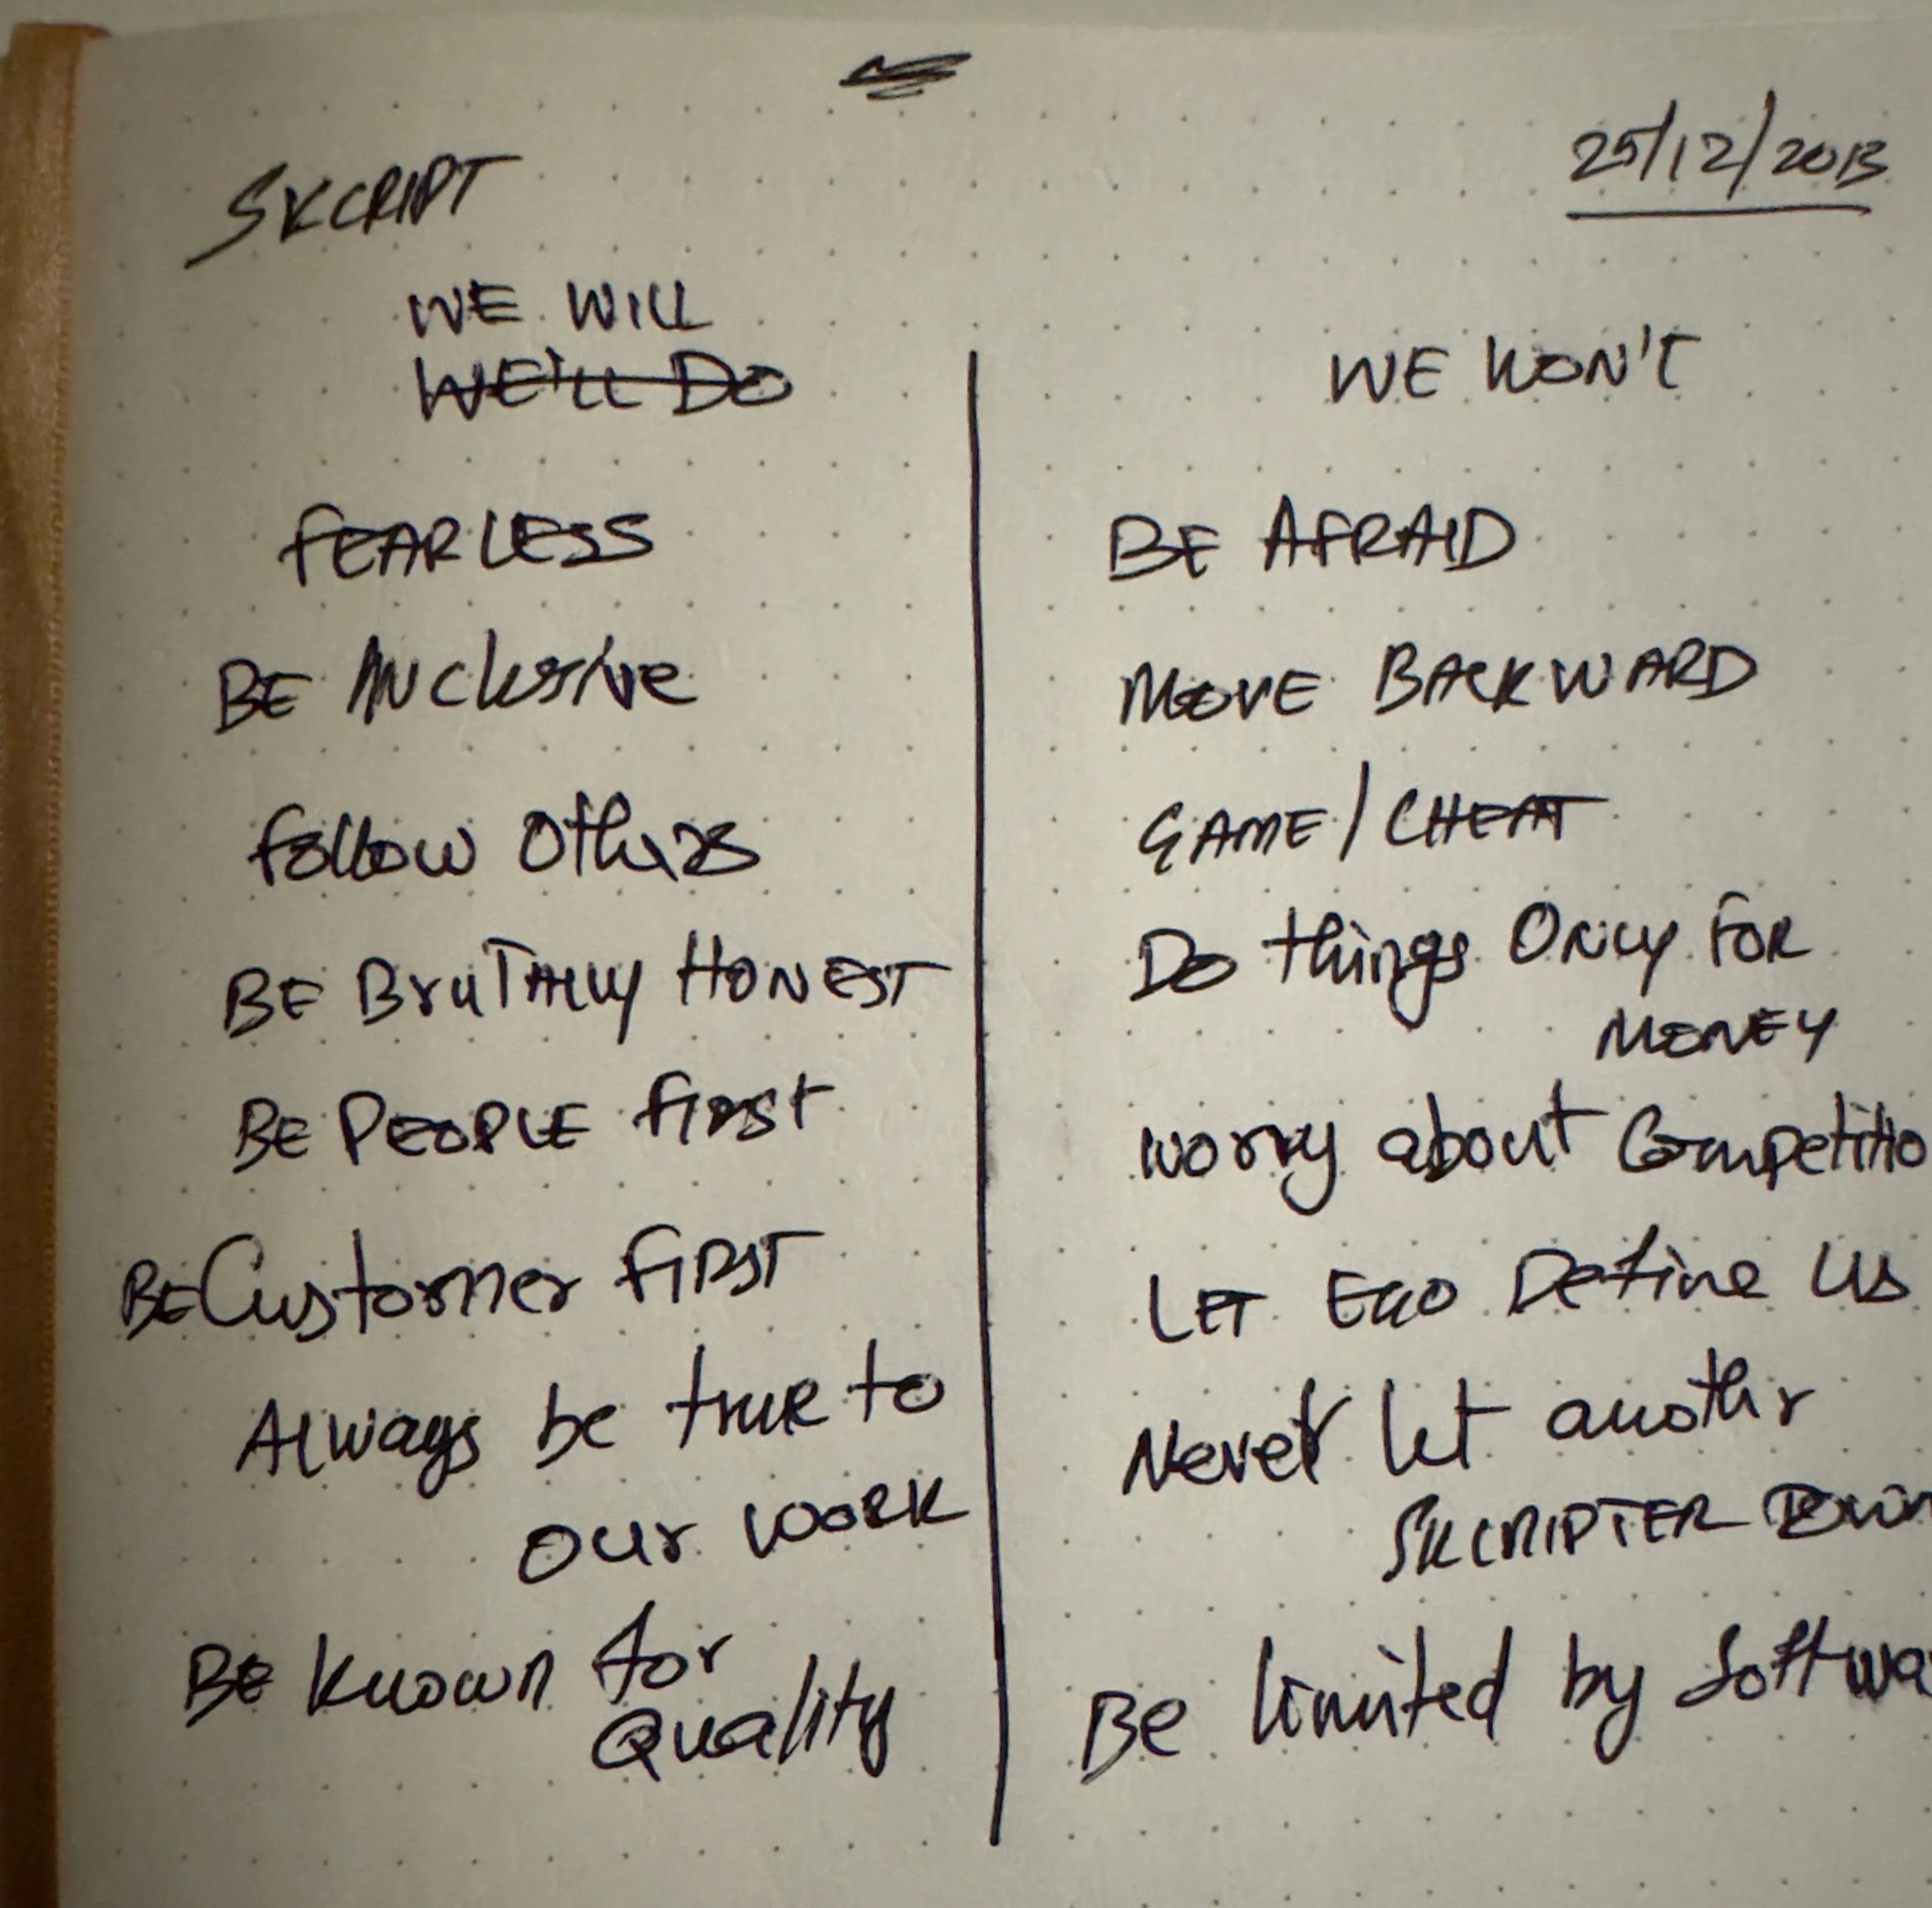 SKCRIPT
25/12/2013
WE WILL
WE'LL DO
FEARLESS
BE INClusive
Follow Others
BE BruTAlly HONEST
BE PEOPLE first
BE Customer FIRST
Always be true to
our work
BE known for
Quality
WE WON'T
BE AFRAID
MOVE BACKWARD
GAME/CHEAT
Do things ONly FOR
MONEY
worry about Competitio
LET EGO Define Us
Never let another
SKCRIPTER DOWN
Be limited by Softwa